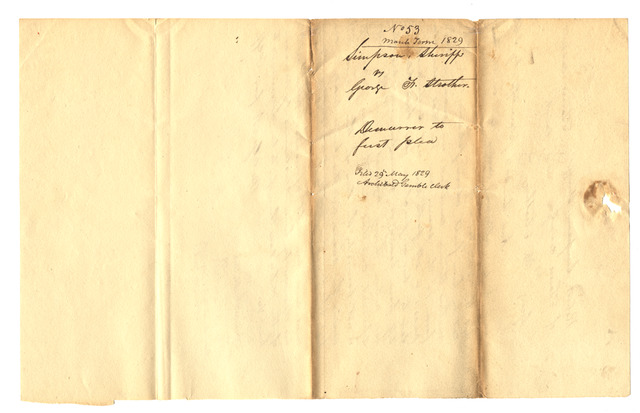 No 53
March Term 1829
Simpson, Sheriff
vs
George F. Strother.
Demurrer to
first plea
Filed 29th May 1829
Archibald Gamble clerk